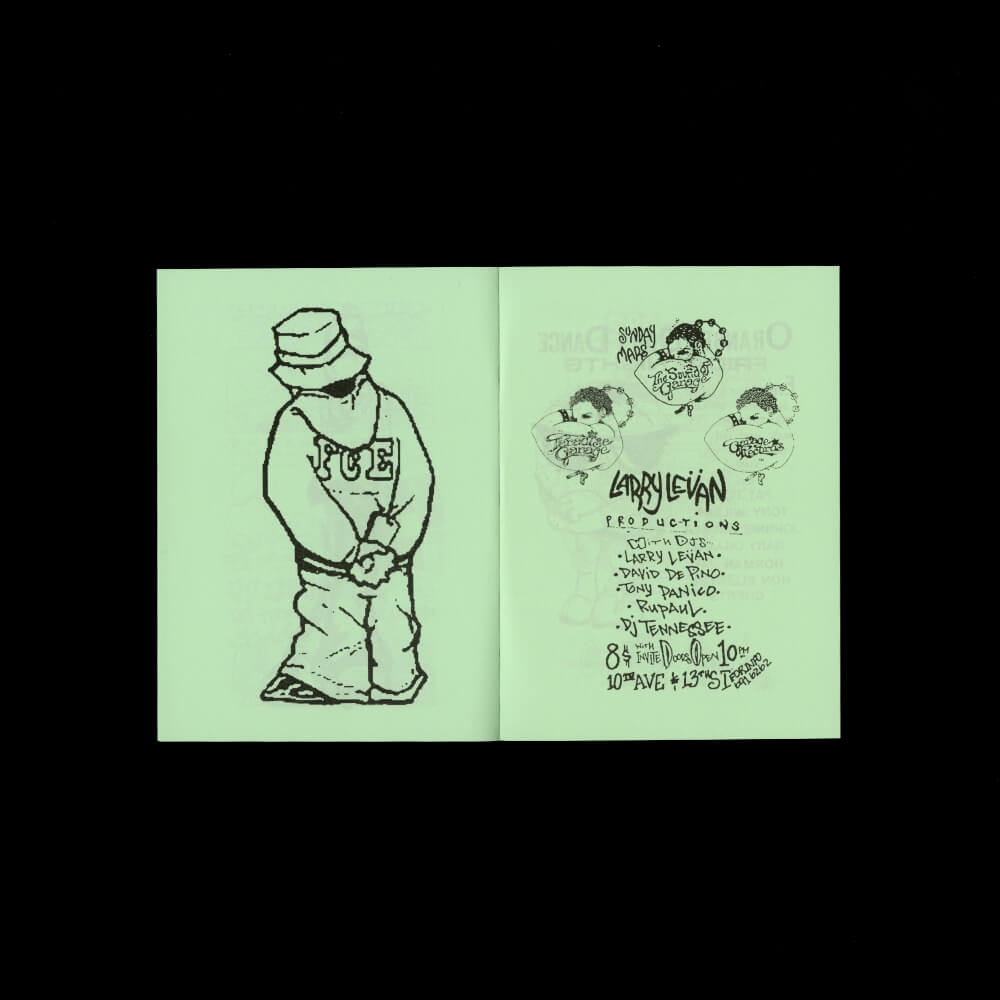 FCE
SUNDAY
MARS
The Sound of
Garage
Paradise
Garage
Garage
Records
LARRY LEVAN
PRODUCTIONS
WITH DJS...
• LARRY LEVAN •
• DAVID DE PINO •
• TONY PANICO •
• RUPAUL •
• DJ TENNESSEE •
8$ WITH INVITE DOORS OPEN 10PM
10TH AVE & 13TH ST FOR INFO
691 6262